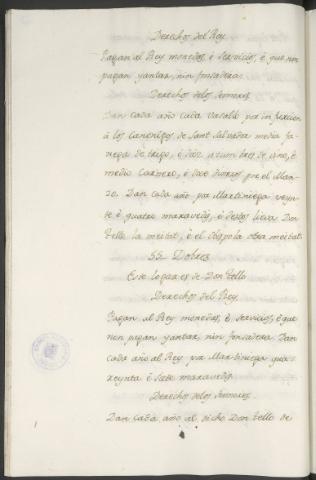 Derechos del Rey
Pagan al Rey monedas, è servicios, è que non
pagan yantar, nin fonsadera.
Derechos delos Señores
Dan cada año cada vasallo por infurcion
à los Canonigos de Sant Salvador media fa-
nega de trigo, è dos azumbres de vino, è
medio carnero, è doce dineros por el Mar-
zo. Dan cada año por Martiniega veyn-
te è quatro maravedis, è destos lieva Don
Tello la meitat, è el Obispo la otra meitat.
55 Dobres
Este logar es de Don Tello
Derechos del Rey
Pagan al Rey monedas, è servicios, è que
non pagan yantar, nin fonsadera. Dan
cada año al Rey por Martiniega qua-
reynta è siete maravedis.
Derechos delos Señores
Dan cada año al dicho Don Tello de